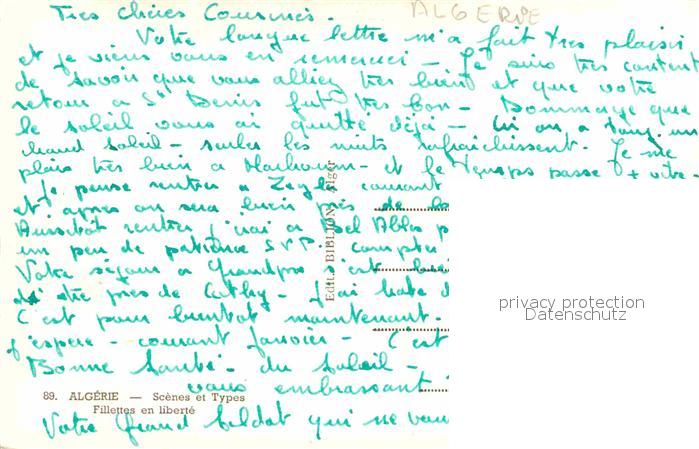 Très chères Cousines.
ALGERIE
Votre longue lettre m'a fait très plaisir
et je viens vous en remercier - Je suis très content
de savoir que vous alliez très bien et que votre
retour a St Denis fut très bon - Dommage que
le soleil vous ai quitté déjà - Ici on a touj. un
chaud soleil - seules les nuits rafraichissent. Je me
plais très bien a - et le temps passe + vite -
Je pense rentrer a courant
et après on sera bien près de la
Aussitôt rentrer j'irai a Bel Abbes
un peu de patience S.V.P. compter
Votre séjour a s'est
d'etre près de Cathy - J'ai hate d
C'est pour bientot maintenant.
j'espère - courant Janvier - C'est
Bonne Santé - du Soleil -
vous embrassant
Votre Grand Soldat qui ne
89. ALGÉRIE — Scènes et Types
Fillettes en liberté
Edit. BIBLION - Alger
privacy protection
Datenschutz